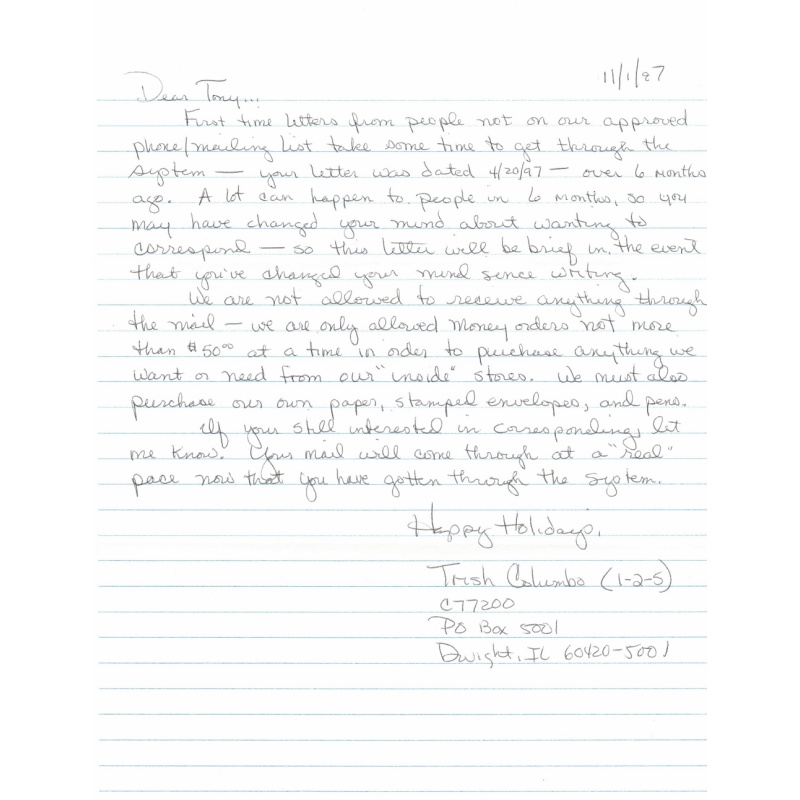 11/1/97
Dear Tony...
First time letters from people not on our approved
phone/mailing list take some time to get through the
system — your letter was dated 4/20/97 — over 6 months
ago. A lot can happen to people in 6 months, so you
may have changed your mind about wanting to
correspond — so this letter will be brief in the event
that you've changed your mind sence writing.
We are not allowed to receive anything through
the mail — we are only allowed money orders not more
than $50⁰⁰ at a time in order to purchase anything we
want or need from our "inside" stores. We must also
purchase our own paper, stamped envelopes, and pens.
If your still interested in corresponding, let
me know. Your mail will come through at a "real"
pace now that you have gotten through the system.
Happy Holidays,
Trish Columbo (1-2-5)
C77200
PO Box 5001
Dwight, IL 60420-5001